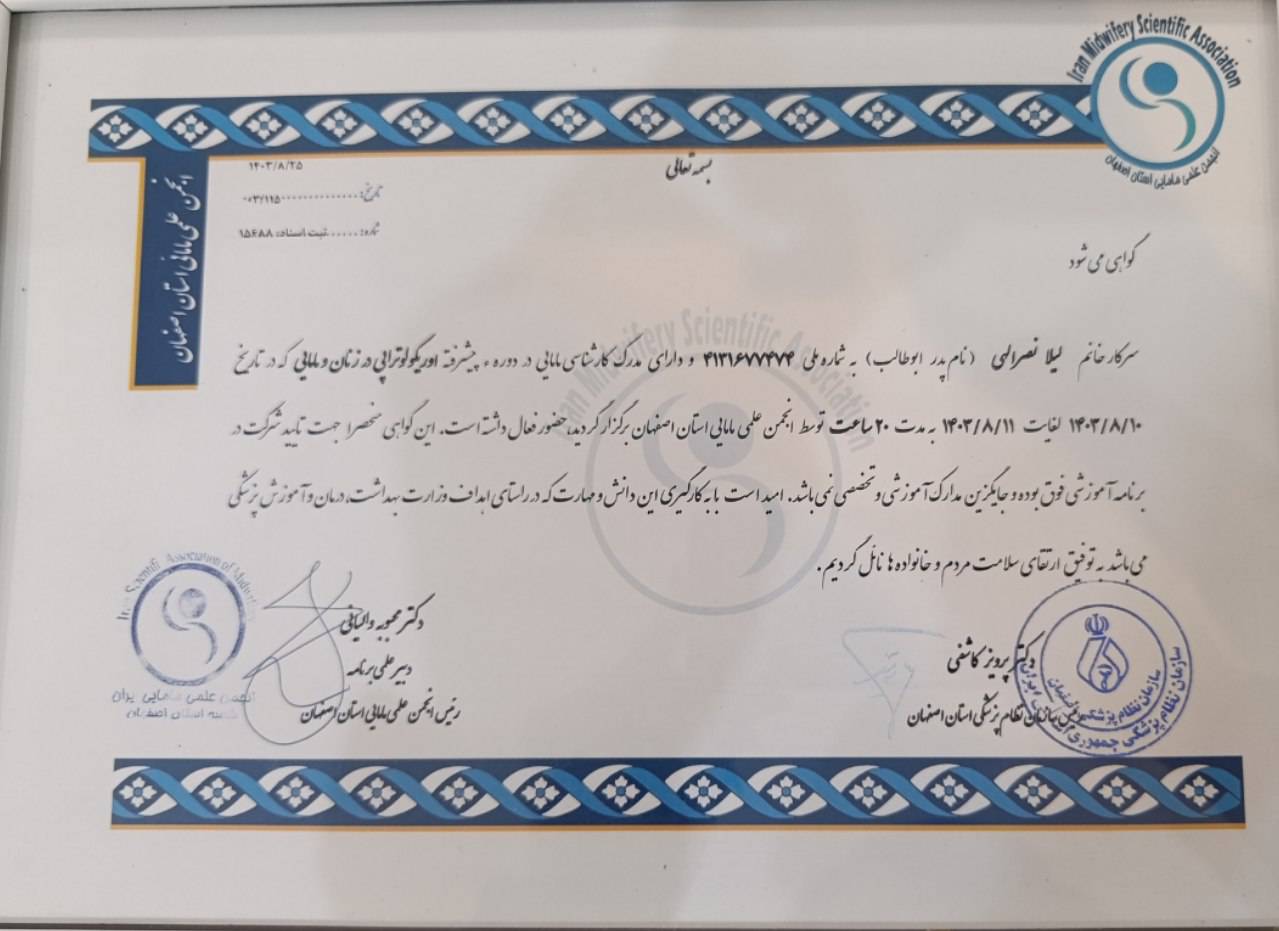 Iran Midwifery Scientific Association
انجمن علمی مامایی استان اصفهان
بسمه تعالی
۱۴۰۳/۸/۲۵
تاریخ:..............۰۰۳/۱۱۵
شماره:......ثبت اسناد: ۱۵۶۸۸
انجمن علمی مامایی استان اصفهان
گواهی می شود
سرکار خانم لیلا نصرالهی (نام پدر ابوطالب) به شماره ملی ۴۱۳۱۶۷۷۴۷۴ و دارای مدرک کارشناسی مامایی در دوره ء پیشرفته اوریکولوتراپی در زنان و مامایی که در تاریخ
۱۴۰۳/۸/۱۰ لغایت ۱۴۰۳/۸/۱۱ به مدت ۲۰ ساعت توسط انجمن علمی مامایی استان اصفهان برگزار گردید، حضور فعال داشته است. این گواهی منحصرا جهت تایید شرکت در
برنامه آموزشی فوق بوده و جایگزین مدارک آموزشی و تخصصی نمی باشد. امید است با به کارگیری این دانش و مهارت که در راستای اهداف وزارت بهداشت، درمان و آموزش پزشکی
می باشد به توفیق ارتقای سلامت مردم و خانواده ها نائل گردیم.
Iran Midwifery Scientific Association
دکتر پرویز کاشفی
رئیس سازمان نظام پزشکی استان اصفهان
سازمان نظام پزشکی جمهوری اسلامی ایران
سازمان نظام پزشکی اصفهان
دکتر محبوبه والیانی
دبیر علمی برنامه
رئیس انجمن علمی مامایی استان اصفهان
Iran Scientific Association of Midwifery
انجمن علمی مامایی ایران
شعبه استان اصفهان